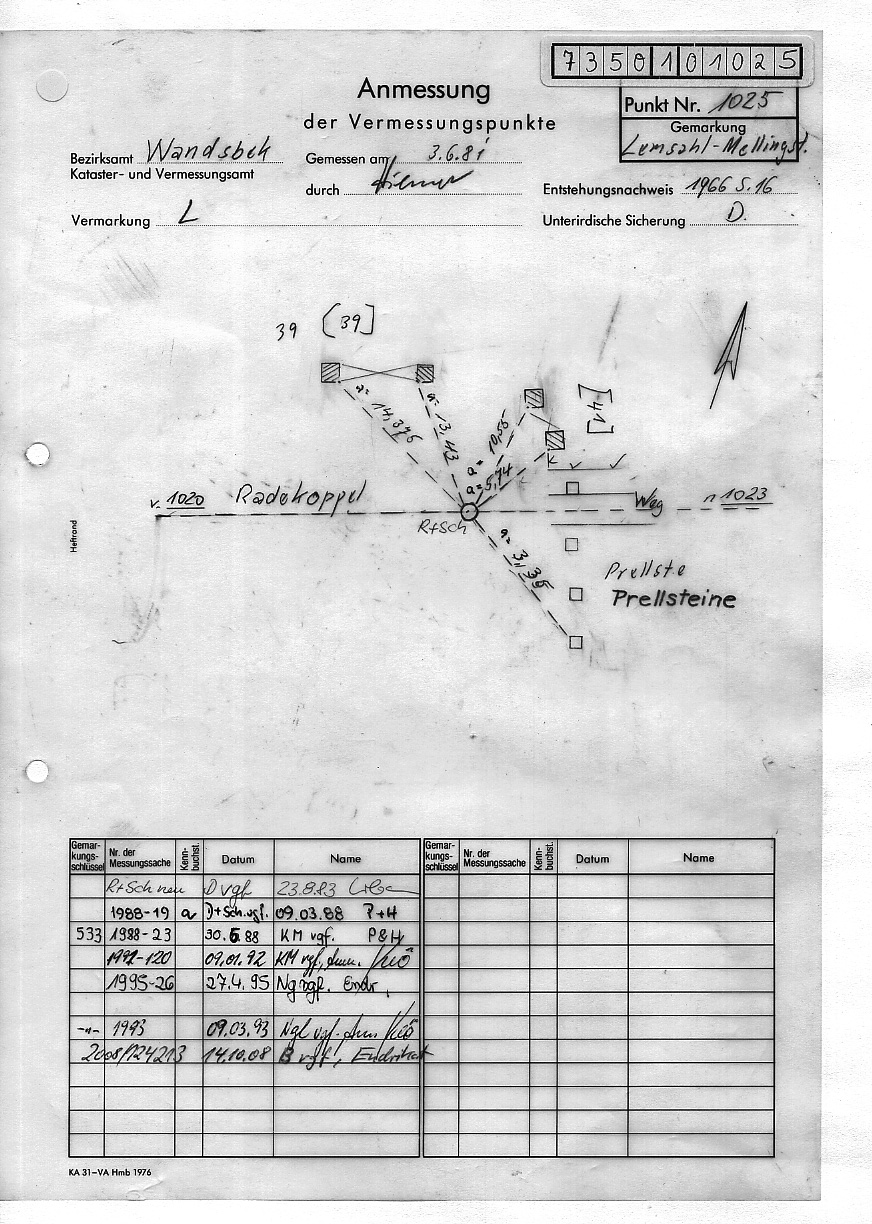 7350101025
Anmessung
der Vermessungspunkte
Punkt Nr. 1025
Gemarkung
Lemsahl-Mellingst.
Bezirksamt Wandsbek
Kataster- und Vermessungsamt
Gemessen am 3.6.81
durch
Entstehungsnachweis 1966 S.16
Vermarkung L
Unterirdische Sicherung D.
39 [39]
[41]
a= 14,376
a= 13,43
a= 10,56
a= 5,74
K
v. 1020 Radekoppel
Weg n 1023
R+Sch
a= 3,35
Prellste
Prellsteine
Heftrand
Gemar-kungs-schlüssel Nr. der Messungssache Kenn-buchst. Datum Name Gemar-kungs-schlüssel Nr. der Messungssache Kenn-buchst. Datum Name
R+Sch neu D vgf 23.8.83
1988-19 a D+Sch.vgf. 09.03.88 P+H
533 1988-23 30.6.88 KM vgf. P&H
1991-120 09.01.92 KM vgf,
1995-26 27.4.95 Ng vgf. Endr.
-"- 1993 09.03.93 Ngl vgf.
2008/124213 14.10.08 B vgf,
KA 31-VA Hmb 1976